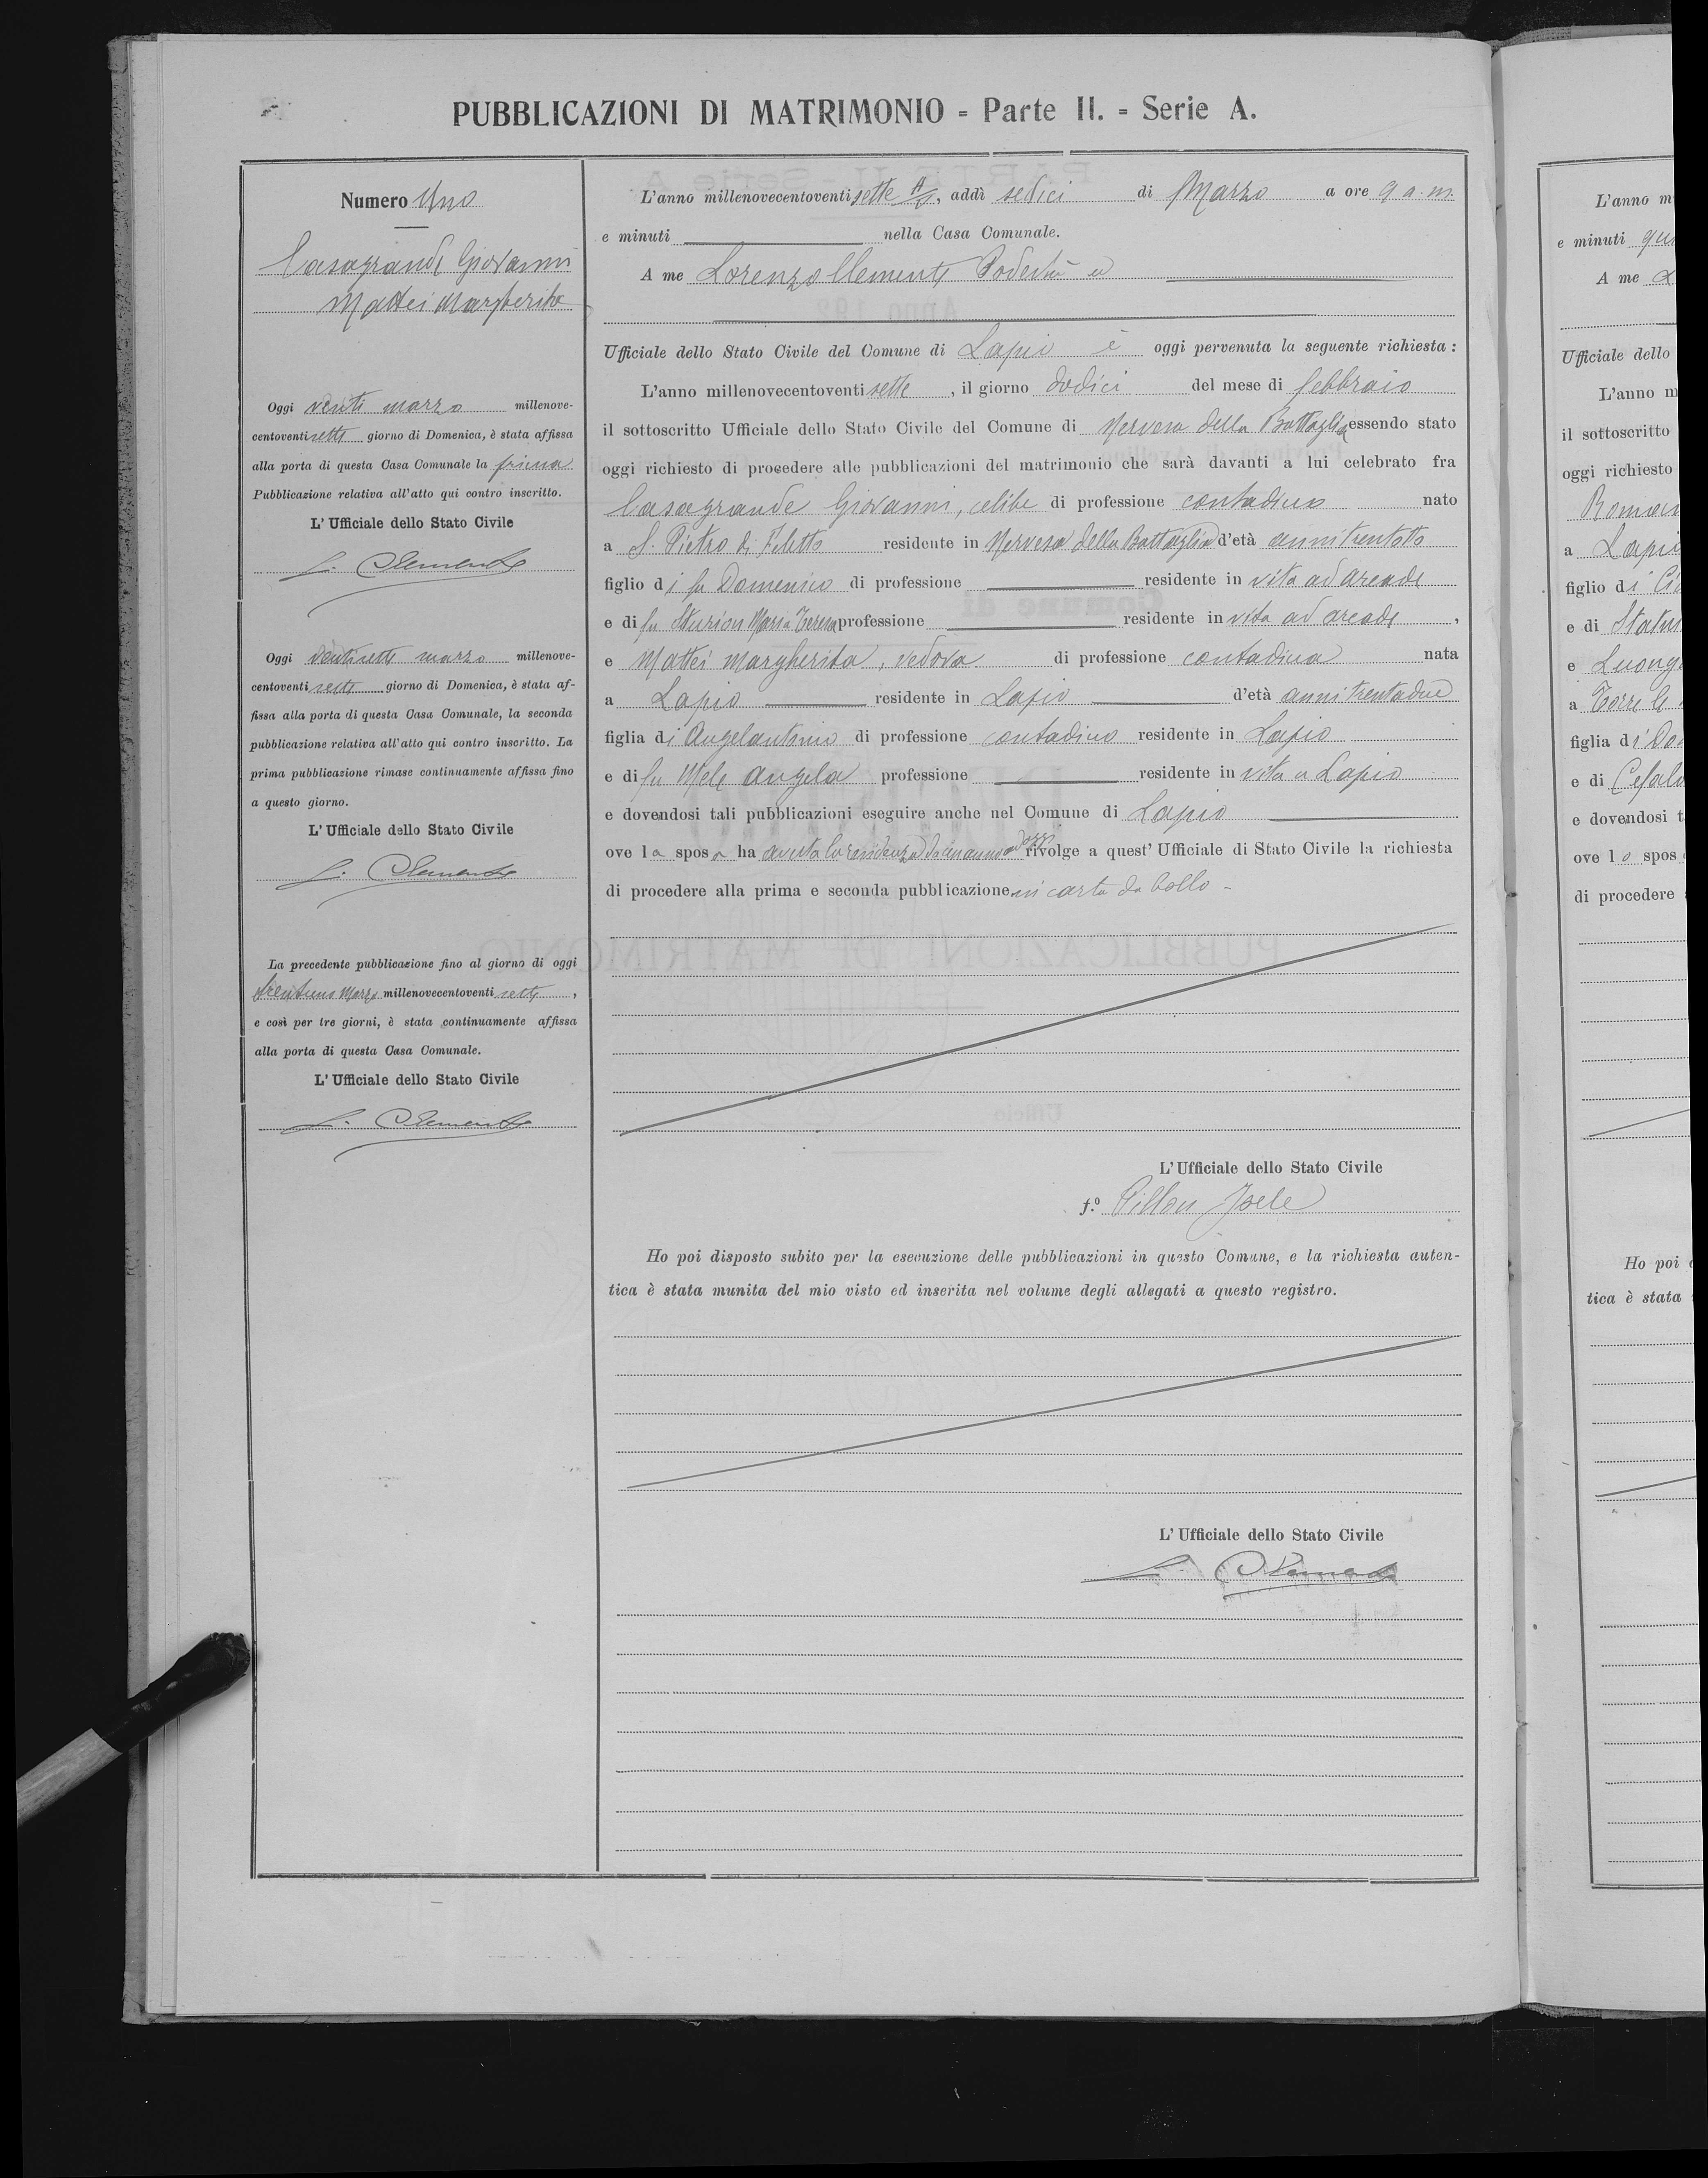 PUBBLICAZIONI DI MATRIMONIO = Parte II. = Serie A.
Numero Uno
Casagrande Giovanni
Mattei Margherita
Oggi venti marzo millenove-
centoventisette giorno di Domenica, è stata affissa
alla porta di questa Casa Comunale la prima
Pubblicazione relativa all'atto qui contro inscritto.
L'Ufficiale dello Stato Civile
L. Clemente
Oggi ventisette marzo millenove-
centoventi sette giorno di Domenica, è stata af-
fissa alla porta di questa Casa Comunale, la seconda
pubblicazione relativa all'atto qui contro inscritto. La
prima pubblicazione rimase continuamente affissa fino
a questo giorno.
L'Ufficiale dello Stato Civile
L. Clemente
La precedente pubblicazione fino al giorno di oggi
trentuno Marzo millenovecentoventi sette,
e così per tre giorni, è stata continuamente affissa
alla porta di questa Casa Comunale.
L'Ufficiale dello Stato Civile
L. Clemente
L'anno millenovecentoventisette, addì sedici di Marzo a ore 9 a.m.
e minuti nella Casa Comunale.
A me Lorenzo Clemente Podestà ed
Ufficiale dello Stato Civile del Comune di Lapio è oggi pervenuta la seguente richiesta:
L'anno millenovecentoventi sette, il giorno dodici del mese di febbraio
il sottoscritto Ufficiale dello Stato Civile del Comune di Nervesa della Battaglia essendo stato
oggi richiesto di procedere alle pubblicazioni del matrimonio che sarà davanti a lui celebrato fra
Casagrande Giovanni, celibe di professione contadino nato
a S. Pietro di Feletto residente in Nervesa della Battaglia d'età anni trentotto
figlio di fu Domenico di professione residente in vita ad Arcade
e di fu Maria Teresa professione residente in vita ad arcade,
e Mattei Margherita, vedova di professione contadina nata
a Lapio residente in Lapio d'età anni trentadue
figlia di Angelantonio di professione contadino residente in Lapio
e di fu Mele Angela professione residente in vita a Lapio
e dovendosi tali pubblicazioni eseguire anche nel Comune di Lapio
ove la sposa ha avuto la residenza da un anno ad oggi rivolge a quest'Ufficiale di Stato Civile la richiesta
di procedere alla prima e seconda pubblicazione in carta da bollo -
L'Ufficiale dello Stato Civile
f.º Pillon
Ho poi disposto subito per la esecuzione delle pubblicazioni in questo Comune, e la richiesta auten-
tica è stata munita del mio visto ed inserita nel volume degli allegati a questo registro.
L'Ufficiale dello Stato Civile
L. Clemente
L'anno m
e minuti
A me
Ufficiale dello
L'anno m
il sottoscritto
oggi richiesto
a Lapio
figlio di
e di
e
a Torre le
figlia di
e di
e dovendosi t
ove lo spos
di procedere
Ho poi
tica è stata